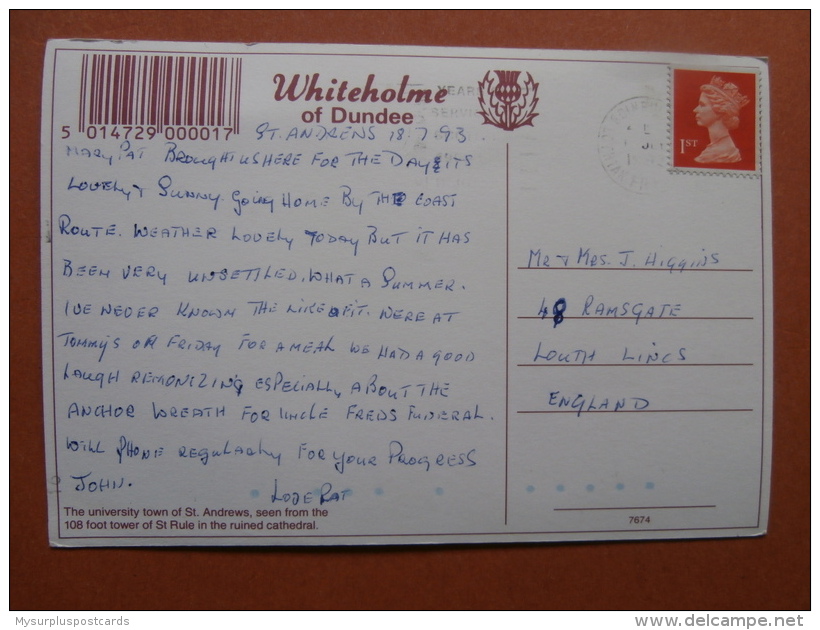 Whiteholme
of Dundee
5 014729 000017
1ST
ST. ANDRENS 18.7.93.
MARY PAT BROUGHT US HERE FOR THE DAY ITS
LOVELY + SUNNY. GOING HOME BY THE COAST
ROUTE. WEATHER LOVELY TODAY BUT IT HAS
BEEN VERY UNSETTLED. WHAT A SUMMER.
IVE NEVER KNOWN THE LIKE OF IT. WERE AT
TOMMY'S ON FRIDAY FOR A MEAL WE HAD A GOOD
LAUGH REMONIZING ESPECIALLY ABOUT THE
ANCHOR WREATH FOR UNCLE FREDS FUNERAL.
WILL PHONE REGULARLY FOR YOUR PROGRESS
JOHN.
LOVE PAT
MR + MRS. J. HIGGINS
48 RAMSGATE
LOUTH LINCS
ENGLAND
The university town of St. Andrews, seen from the
108 foot tower of St Rule in the ruined cathedral.
7674
Mysurpluspostcards
www.delcampe.net